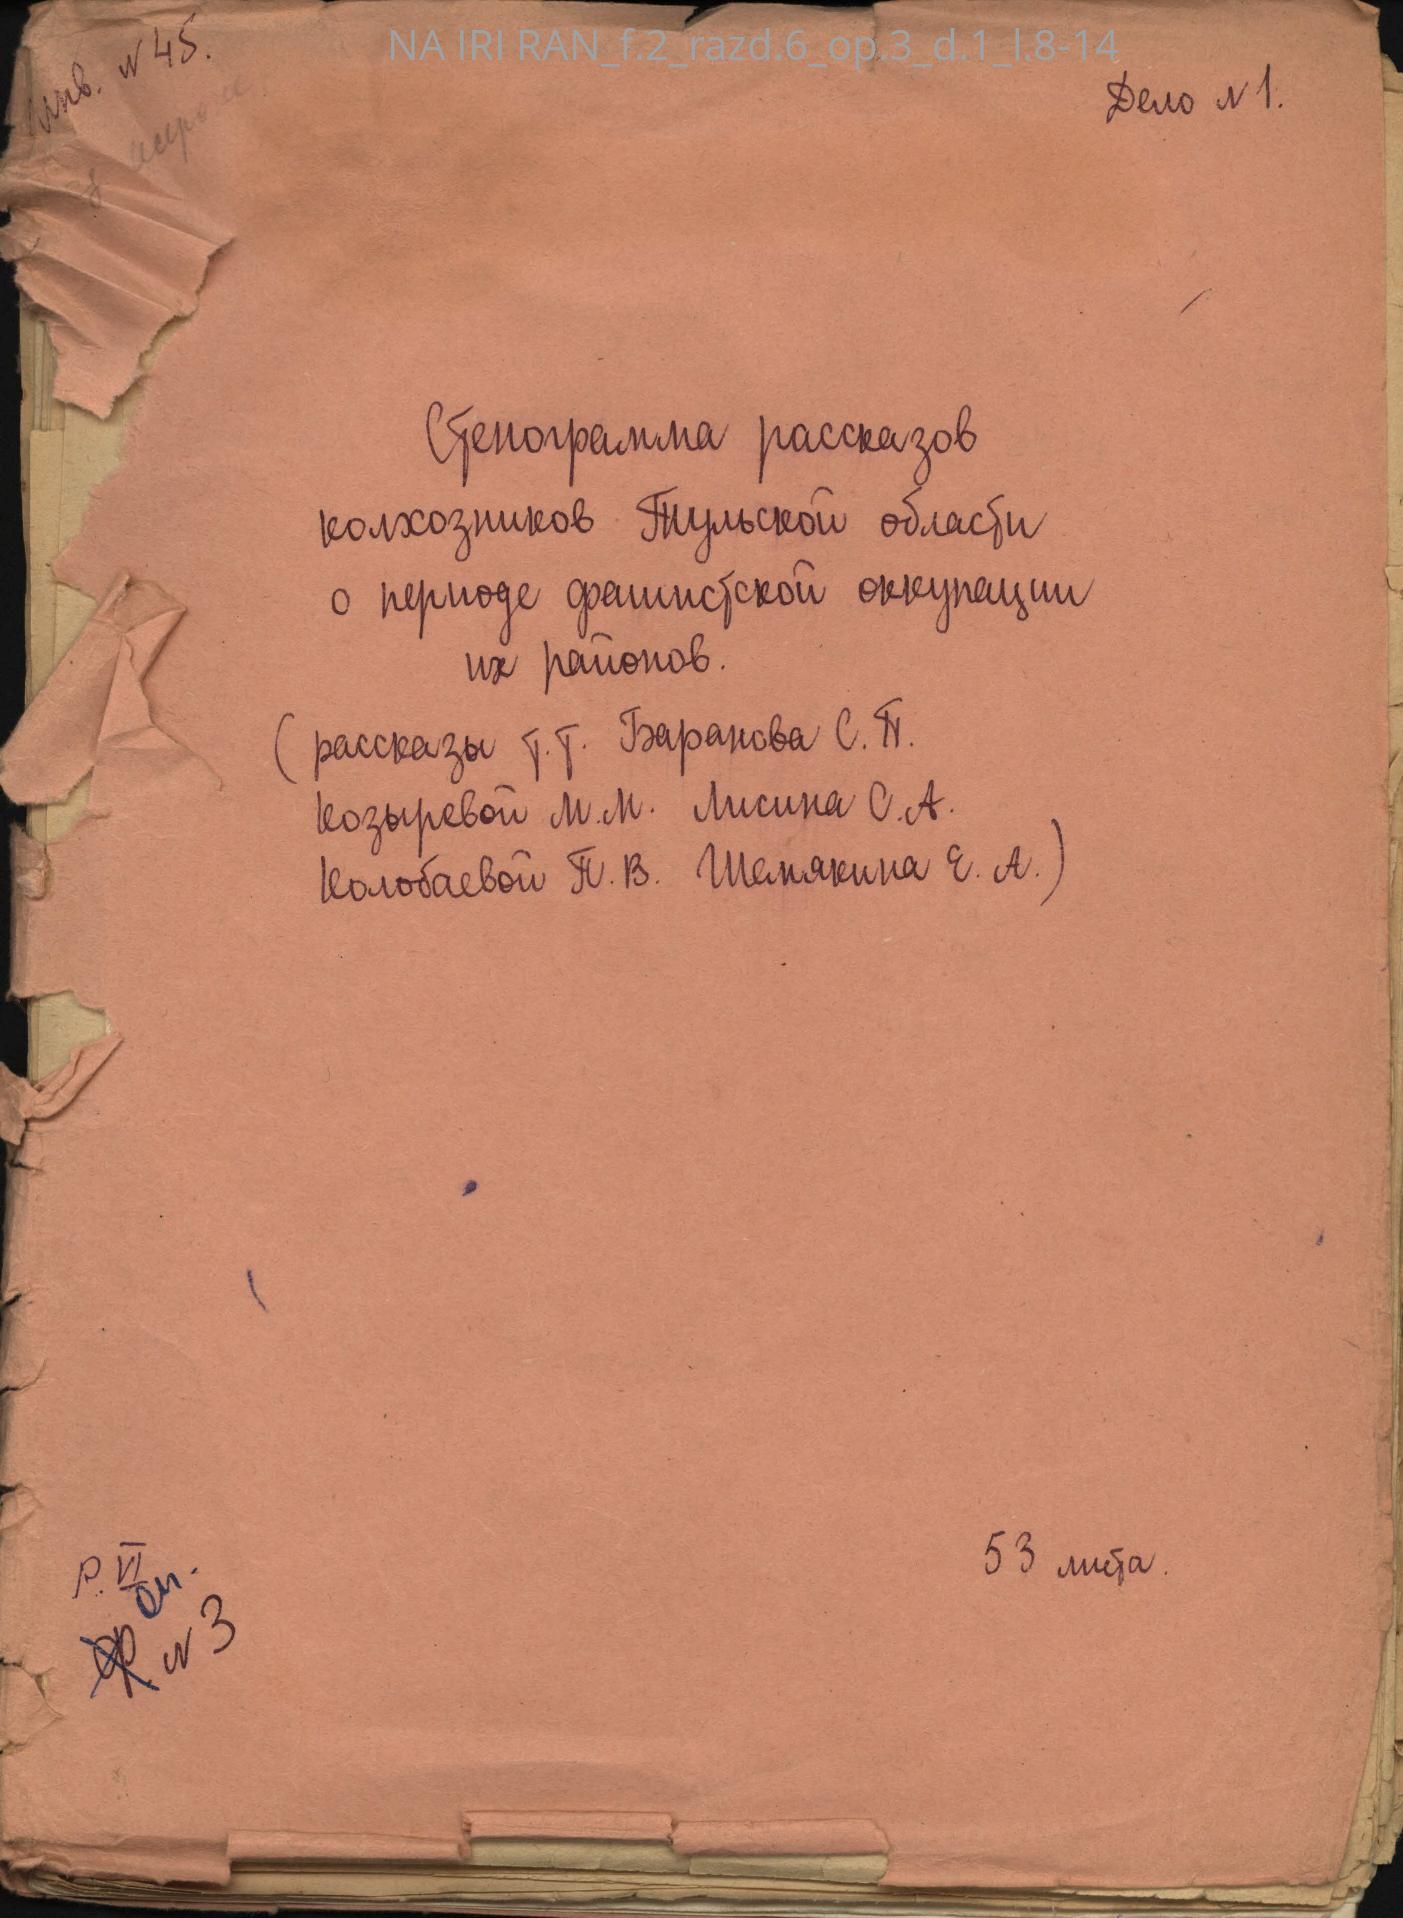 NA IRI RAN_f.2_razd.6_op.3_d.1_l.8-14
Инв. N 45.
Дело N 1.
Стенограмма рассказов
колхозников Тульской области
о периоде фашистской оккупации
их районов.
( рассказы т.т. Баранова С.П.
Козыревой М.М. Лисина С.А.
Колобаевой П.В. Шемякина Е.А.)
53 листа.
Р. VI
оп.
N 3